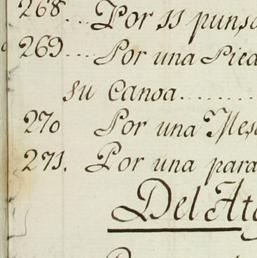 268... Por 55 punso
269... Por una Pied
su Canoa........
270 Por una Mes
271. Por una para
Del Ato